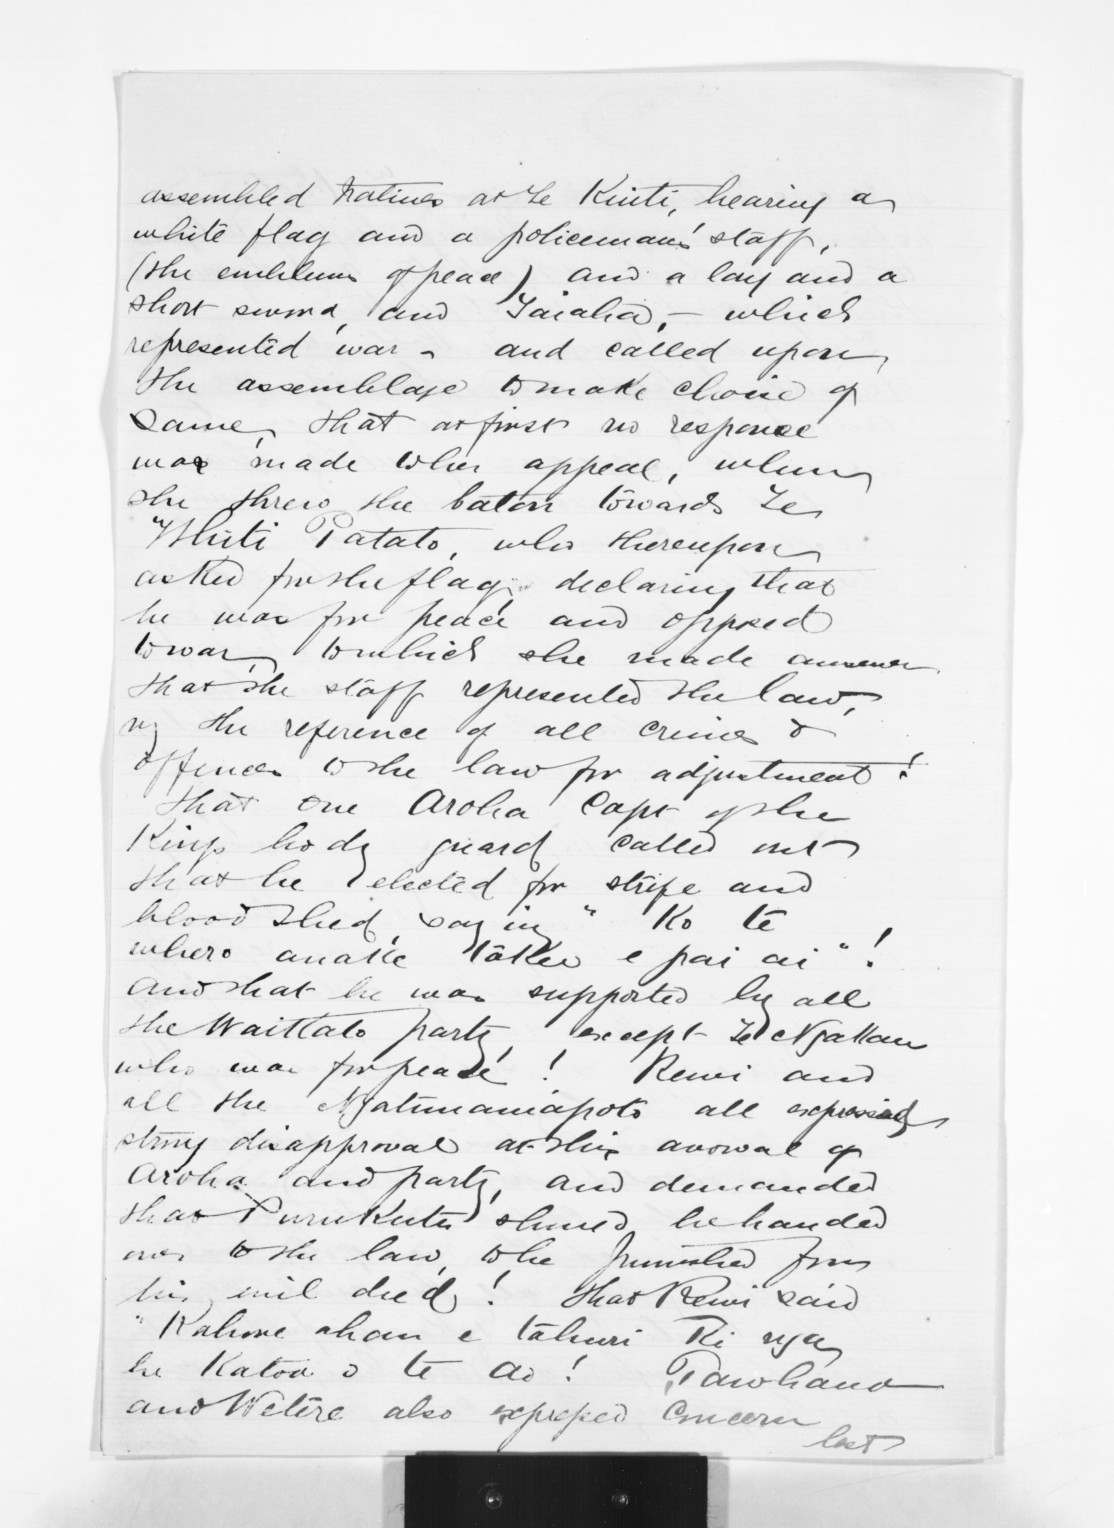 assembled natives at Te Kuiti, bearing a
white flag and a policeman's staff,
(the emblems of peace) and a long and a
short sword, and Taiaha, - which
represented war - and called upon
the assemblage to make choice of
same, that at first no response
was made to her appeal, when
she threw the baton towards Te
Whiti Patato, who thereupon
asked for the flag, declaring that
he was for peace and opposed
to war, to which she made answer
that the staff represented the law,
the reference of all crimes &
offences to the law for adjustment!
That one Aroha Capt of the
Kings body guard called out
that he elected for strife and
bloodshed, saying "Ko te
whero anake take e pai ai"!
and that he was supported by all
the Waikato party, except Te Ngakau
who was for peace! Rewi and
all the Ngatimaniapoto all expressed
strong disapproval at this avowal of
Aroha and party, and demanded
that Purukutu should be handed
over to the law, to be punished for
his evil deed! that Rewi said
"Kahore ahau e tahuri ki nga
he katoa o te ao! Tawhana
and Wetere also expressed concern
lest